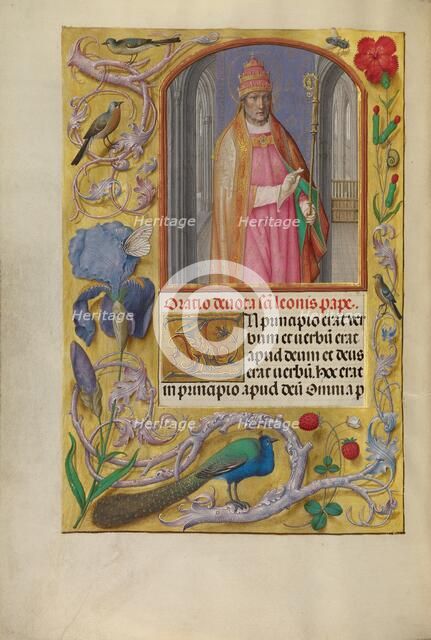 Oratio devota sci leonis pape.
IN principio erat ver
bum et verbu erat
apud deum et deus
erat verbu. hoc erat
in principio apud deu Omnia p
Heritage
Heritage
Heritage
Heritage
Heritage
Heritage
Heritage
Heritage